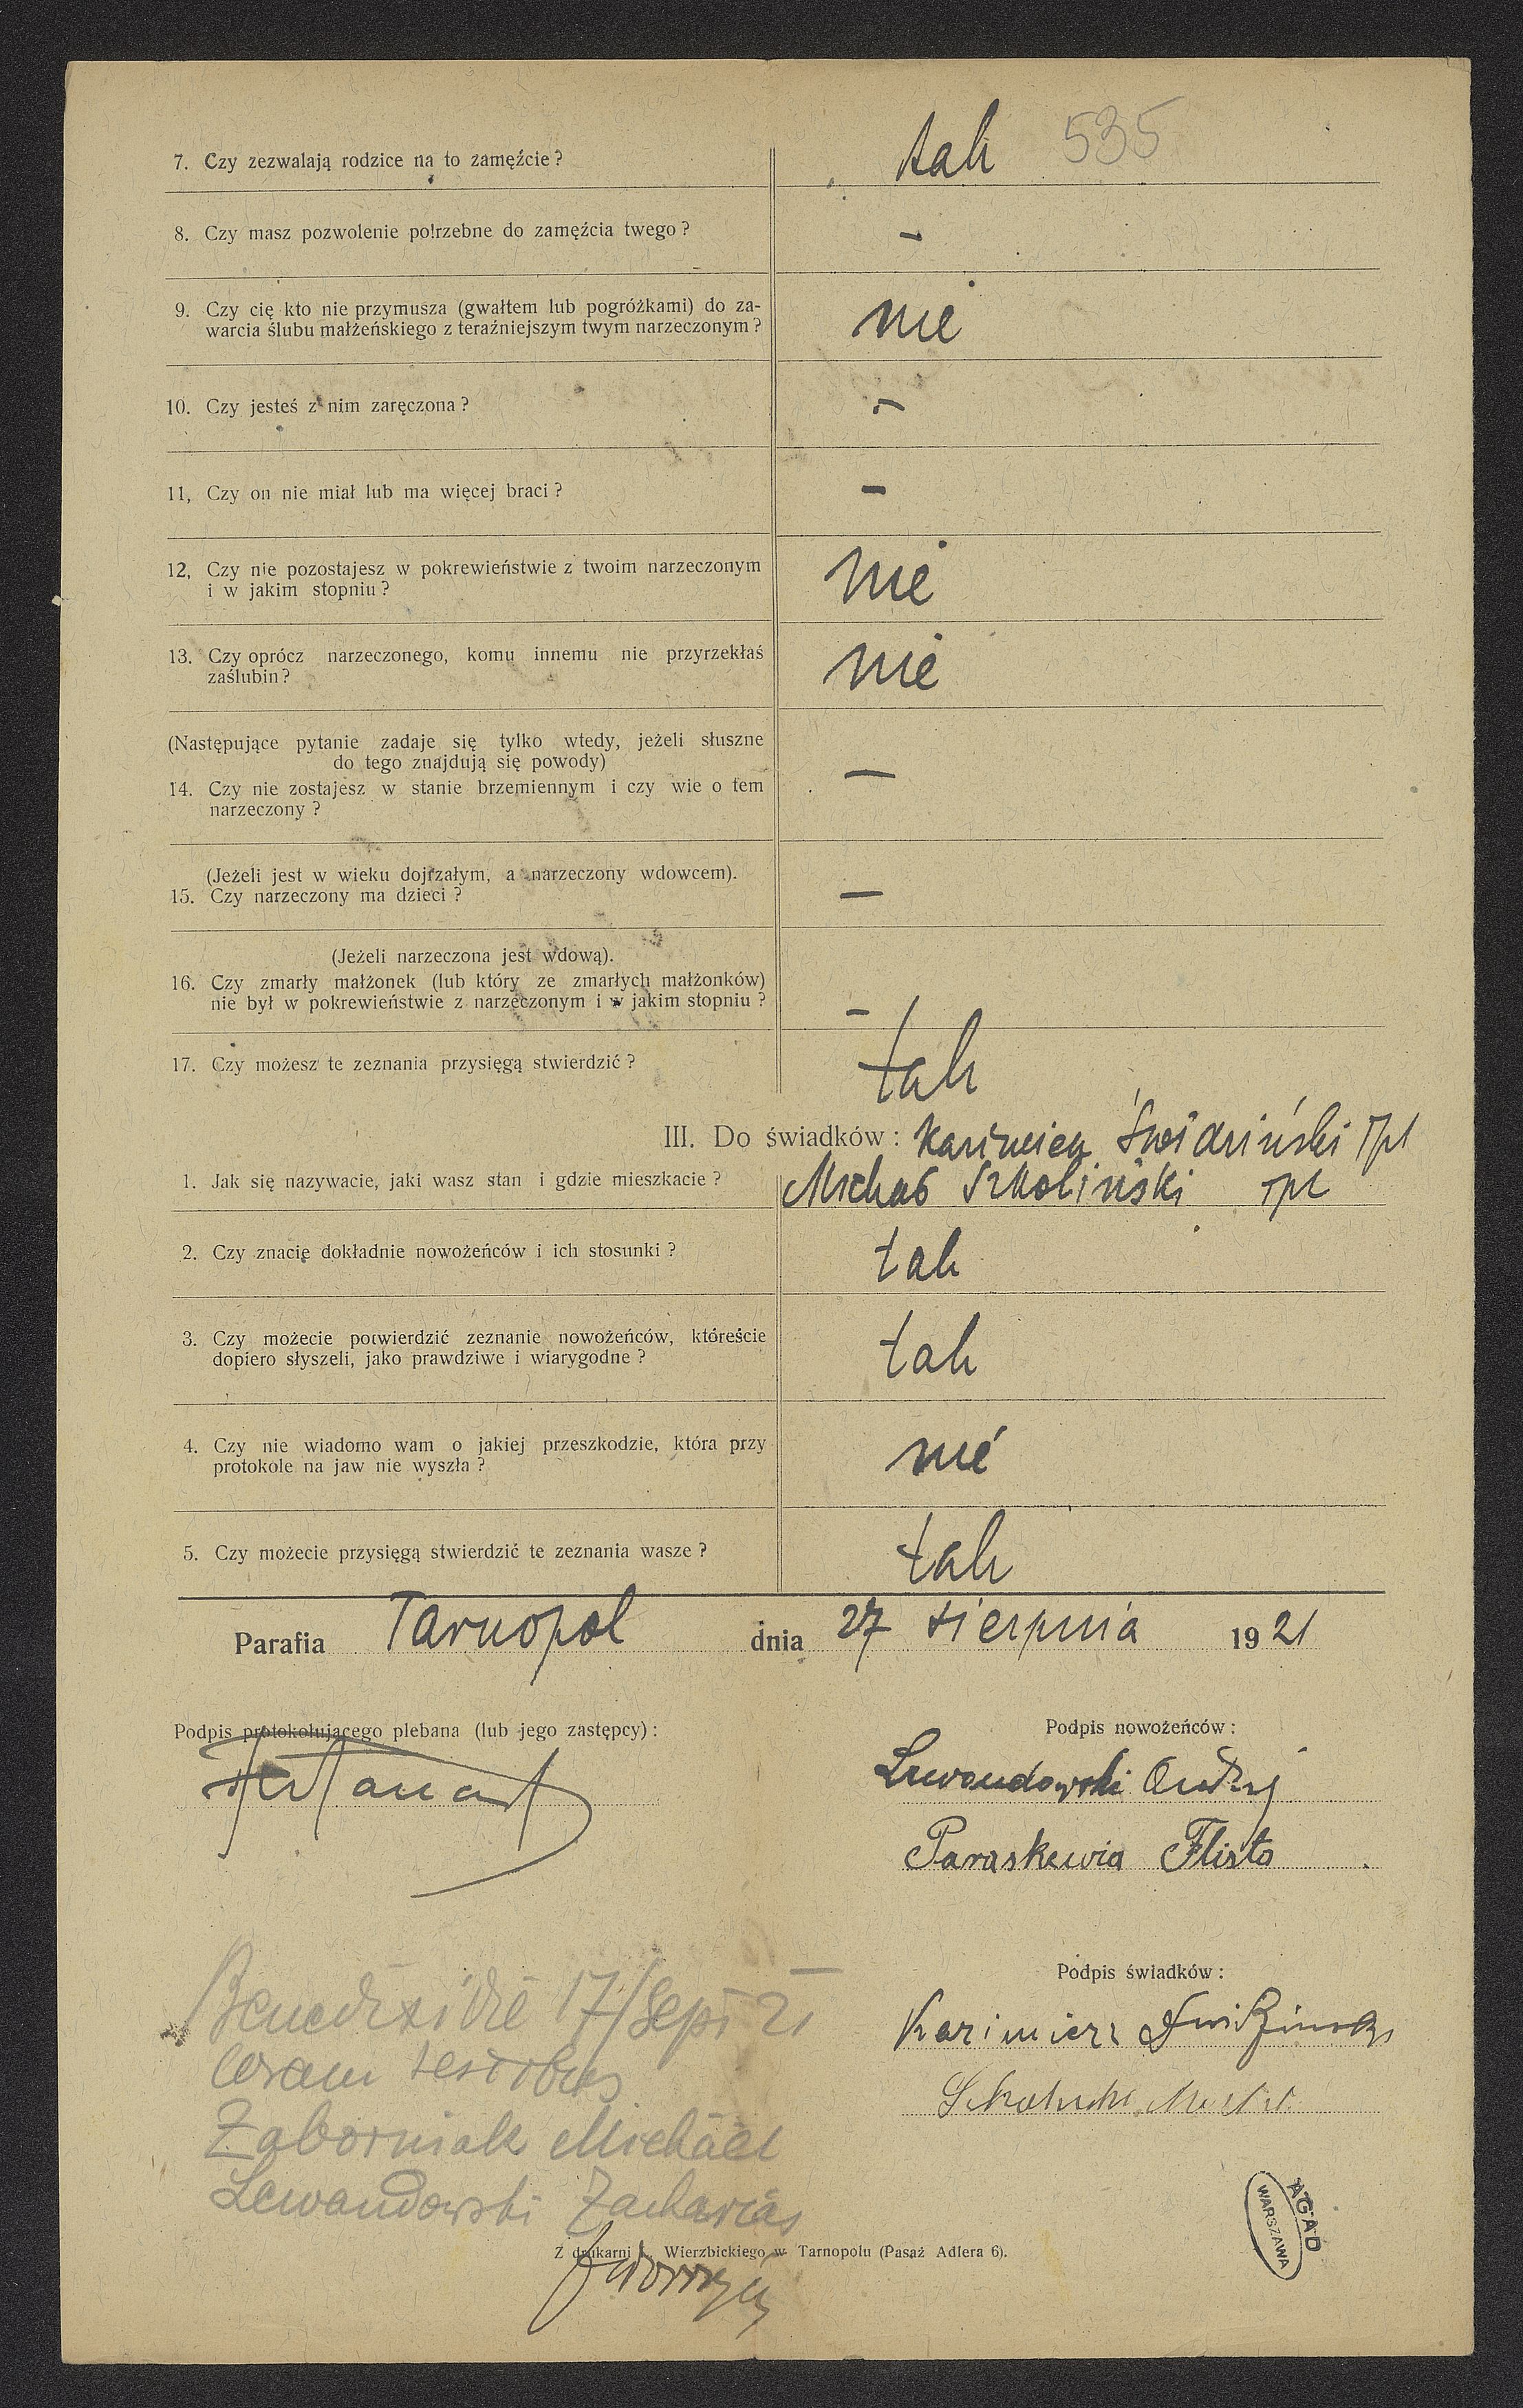 tak 535
7. Czy zezwalają rodzice na to zamęźcie?
8. Czy masz pozwolenie potrzebne do zamęźcia twego? –
9. Czy cię kto nie przymusza (gwałtem lub pogróżkami) do za-
warcia ślubu małżeńskiego z teraźniejszym twym narzeczonym?
nie
10. Czy jesteś z nim zaręczona? –
11, Czy on nie miał lub ma więcej braci? –
12, Czy nie pozostajesz w pokrewieństwie z twoim narzeczonym
i w jakim stopniu?
nie
13. Czy oprócz narzeczonego, komu innemu nie przyrzekłaś
zaślubin?
nie
(Następujące pytanie zadaje się tylko wtedy, jeżeli słuszne
do tego znajdują się powody)
14. Czy nie zostajesz w stanie brzemiennym i czy wie o tem
narzeczony?
–
(Jeżeli jest w wieku dojrzałym, a narzeczony wdowcem).
15. Czy narzeczony ma dzieci? –
(Jeżeli narzeczona jest wdową).
16. Czy zmarły małżonek (lub który ze zmarłych małżonków)
nie był w pokrewieństwie z narzeczonym i w jakim stopniu?
–
17. Czy możesz te zeznania przysięgą stwierdzić? tak
III. Do świadków: Kazimierz Świdziński Tpl
1. Jak się nazywacie, jaki wasz stan i gdzie mieszkacie? Michał Szkoliński Tpl
2. Czy znacie dokładnie nowożeńców i ich stosunki? tak
3. Czy możecie potwierdzić zeznanie nowożeńców, któreście
dopiero słyszeli, jako prawdziwe i wiarygodne?
tak
4. Czy nie wiadomo wam o jakiej przeszkodzie, która przy
protokole na jaw nie wyszła?
nie
5. Czy możecie przysięgą stwierdzić te zeznania wasze? tak
Parafia Tarnopol dnia 27 sierpnia 1921
Podpis protokołującego plebana (lub jego zastępcy):
Podpis nowożeńców:
Lewandowski Andrzej
Paraskewia Flista
Podpis świadków:
Kazimierz Świdziński
Benedixi die 17/Sept 21
coram testibus
Zaborniak Michael
Lewandowski Zacharias
Z drukarni L. Wierzbickiego w Tarnopolu (Pasaż Adlera 6).
AGAD
WARSZAWA